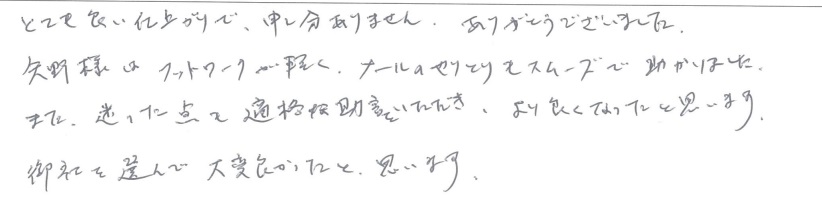 とても良い仕上がりで、申し分ありません。ありがとうございました。
矢野様はフットワークが軽く、メールのやりとりもスムーズで助かりました。
また、迷った点も適格な助言をいただき、より良くなったと思います。
御社を選んで大変良かったと、思います。